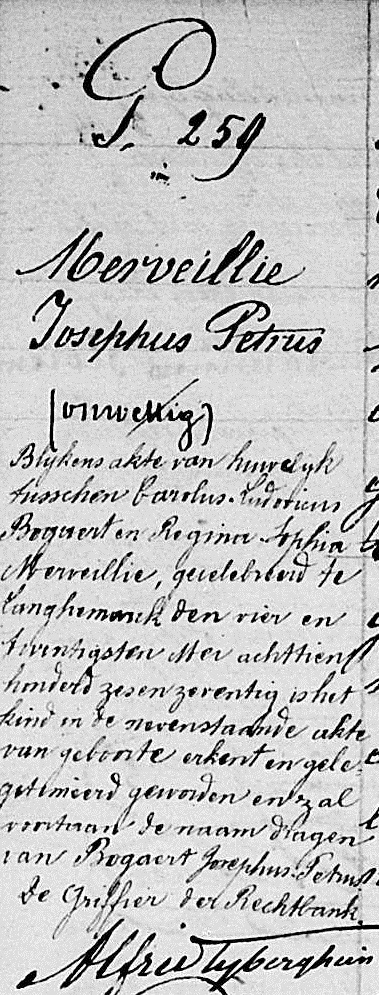 G. 259
Merveillie
Josephus Petrus
(onwettig)
Blijkens akte van huwelijk
tusschen Carolus-Ludovicus
Bogaert en Regina-Sophia
Merveillie, gecelebreerd te
Langhemarck den vier en
twintigsten Mei achttien
honderd zesenzeventig is het
kind in de nevenstaande akte
van geboorte erkent en gele-
gitimeerd geworden en zal
voortaan de naam dragen
van Bogaert Josephus-Petrus
De Griffier der Rechtbank.
Alfred Tyberghein